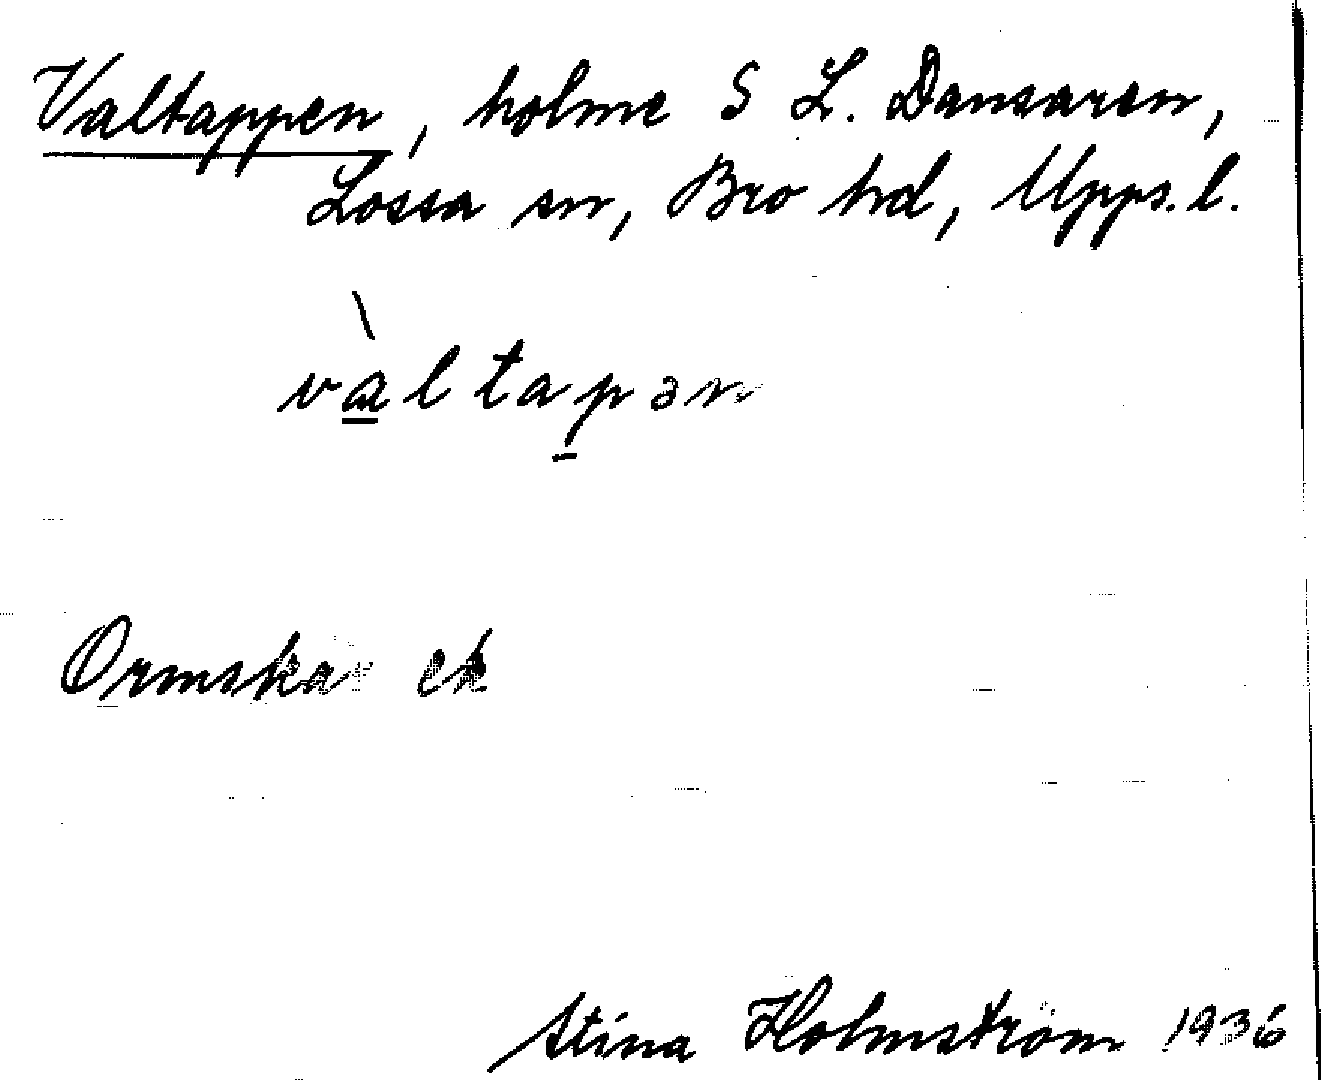 Valtappen, holme S L. Dansaren,
Lossa sn, Bro hd, Upps. l.
và̱ltap̱ən
Ormskär ek
Stina Holmström 1936